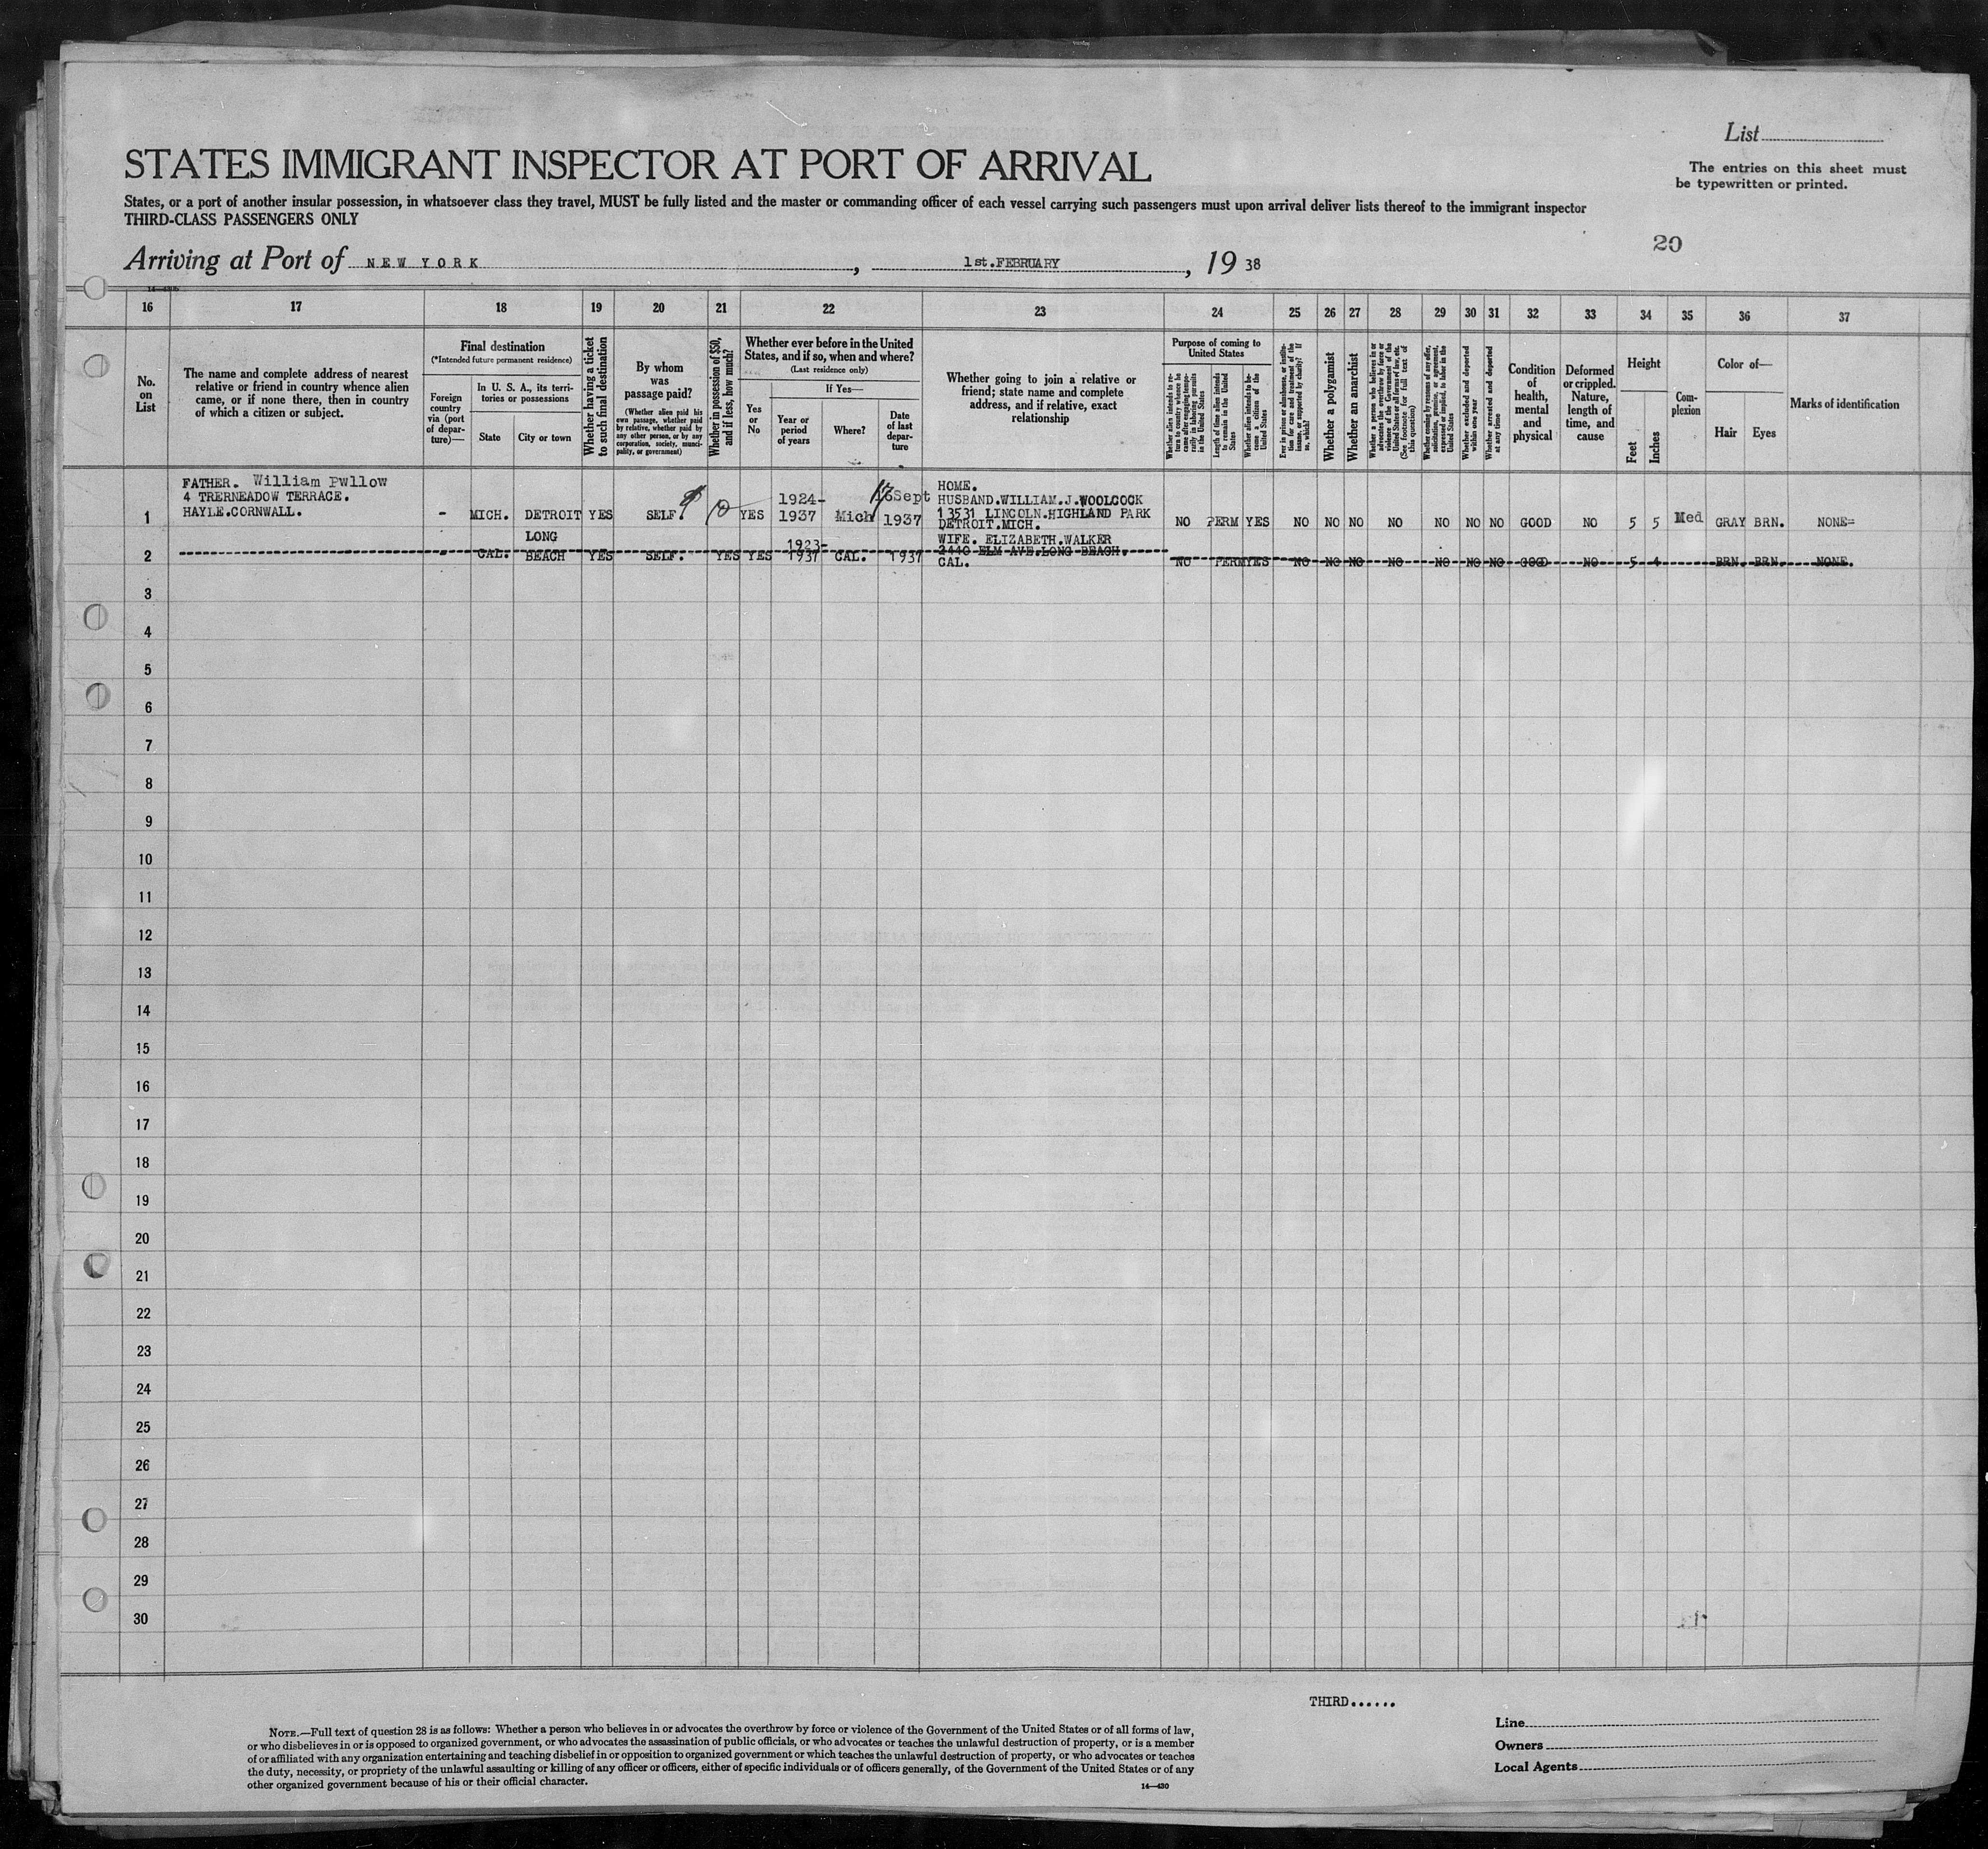 List
STATES IMMIGRANT INSPECTOR AT PORT OF ARRIVAL
The entries on this sheet must
be typewritten or printed.
States, or a port of another insular possession, in whatsoever class they travel, MUST be fully listed and the master or commanding officer of each vessel carrying such passengers must upon arrival deliver lists thereof to the immigrant inspector
THIRD-CLASS PASSENGERS ONLY
20
Arriving at Port of NEW YORK, 1st.FEBRUARY, 19 38
16 17 18 19 20 21 22 23 24 25 26 27 28 29 30 31 32 33 34 35 36 37
No.
on
List
The name and complete address of nearest
relative or friend in country whence alien
came, or if none there, then in country
of which a citizen or subject.
Final destination
(*Intended future permanent residence)
Foreign
country
via (port
of depar-
ture)—
In U. S. A., its terri-
tories or possessions
State
City or town
Whether having a ticket
to such final destination
By whom
was
passage paid?
(Whether alien paid his
own passage, whether paid
by relative, whether paid by
any other person, or by any
corporation, society, munici-
pality, or government)
Whether in possession of $50,
and if less, how much?
Whether ever before in the United
States, and if so, when and where?
(Last residence only)
Yes
or
No
If Yes—
Year or
period
of years
Where?
Date
of last
depar-
ture
Whether going to join a relative or
friend; state name and complete
address, and if relative, exact
relationship
Purpose of coming to
United States
Whether alien intends to re-
turn to country whence he
came after engaging tempo-
rarily in laboring pursuits
in the United States
Length of time alien intends
to remain in the United
States
Whether alien intends to be-
come a citizen of the
United States
Ever in prison or almshouse, or institu-
tion for care and treatment of the
insane, or supported by charity? If
so, which?
Whether a polygamist
Whether an anarchist
Whether a person who believes in or
advocates the overthrow by force or
violence of the Government of the
United States or all forms of law, etc.
(See footnote for full text of
this question)
Whether coming by reasons of any offer,
solicitation, promise, or agreement,
expressed or implied, to labor in the
United States
Whether excluded and deported
within one year
Whether arrested and deported
at any time
Condition
of
health,
mental
and
physical
Deformed
or crippled.
Nature,
length of
time, and
cause
Height
Feet
Inches
Com-
plexion
Color of—
Hair Eyes
Marks of identification
FATHER. William Pwllow
4 TRERNEADOW TERRACE.
HAYLE.CORNWALL.
1 - MICH. DETROIT YES SELF. YES 1924-1937 Mich Sept 1937
HOME.
HUSBAND.WILLIAM.J.WOOLCOCK
13531 LINCOLN.HIGHLAND PARK
DETROIT.MICH.
NO PERM YES NO NO NO NO NO NO NO GOOD NO 5 5 Med GRAY BRN. NONE=
2 - CAL. LONG BEACH YES SELF. YES YES 1923-1937 CAL. 1937
WIFE. ELIZABETH.WALKER
2440 ELM AVE.LONG BEACH.
CAL.
NO PERM YES NO NO NO NO NO NO NO GOOD NO 5 4 BRN. BRN. NONE.
3
4
5
6
7
8
9
10
11
12
13
14
15
16
17
18
19
20
21
22
23
24
25
26
27
28
29
30
THIRD......
NOTE.—Full text of question 28 is as follows: Whether a person who believes in or advocates the overthrow by force or violence of the Government of the United States or of all forms of law,
or who disbelieves in or is opposed to organized government, or who advocates the assassination of public officials, or who advocates or teaches the unlawful destruction of property, or is a member
of or affiliated with any organization entertaining and teaching disbelief in or opposition to organized government or which teaches the unlawful destruction of property, or who advocates or teaches
the duty, necessity, or propriety of the unlawful assaulting or killing of any officer or officers, either of specific individuals or of officers generally, of the Government of the United States or of any
other organized government because of his or their official character.
14—430
Line
Owners
Local Agents